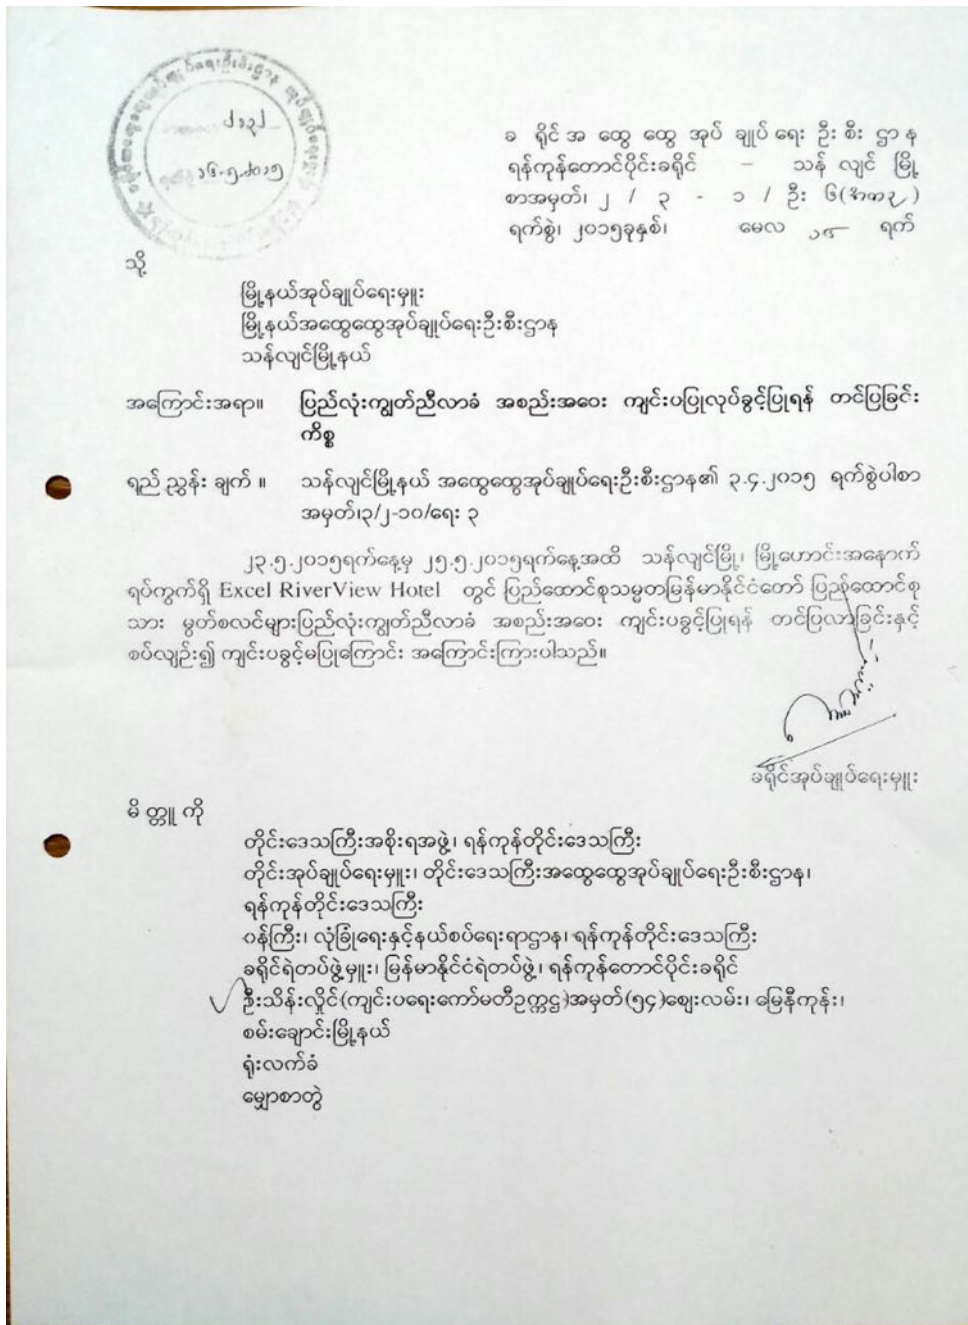 ၁၆-၅-၂၀၁၅
ခ ရိုင် အ ထွေ ထွေ အုပ် ချုပ် ရေး ဦး စီး ဌာ န
ရန်ကုန်တောင်ပိုင်းခရိုင် – သန် လျင် မြို့
စာအမှတ်၊ ၂ / ၃ - ၁ / ဦး ၆(
ရက်စွဲ၊ ၂၀၁၅ခုနှစ်၊ မေလ ၁၅ ရက်
သို့
မြို့နယ်အုပ်ချုပ်ရေးမှူး
မြို့နယ်အထွေထွေအုပ်ချုပ်ရေးဦးစီးဌာန
သန်လျင်မြို့နယ်
အကြောင်းအရာ။ ပြည်လုံးကျွတ်ညီလာခံ အစည်းအဝေး ကျင်းပပြုလုပ်ခွင့်ပြုရန် တင်ပြခြင်း
ကိစ္စ
ရည် ညွှန်း ချက် ။ သန်လျင်မြို့နယ် အထွေထွေအုပ်ချုပ်ရေးဦးစီးဌာန၏ ၃.၄.၂၀၁၅ ရက်စွဲပါစာ
အမှတ်၊၃/၂-၁၀/ရေး ၃
၂၃.၅.၂၀၁၅ရက်နေ့မှ ၂၅.၅.၂၀၁၅ရက်နေ့အထိ သန်လျင်မြို့၊ မြို့ဟောင်းအနောက်
ရပ်ကွက်ရှိ Excel RiverView Hotel တွင် ပြည်ထောင်စုသမ္မတမြန်မာနိုင်ငံတော် ပြည်ထောင်စု
သား မွတ်စလင်များပြည်လုံးကျွတ်ညီလာခံ အစည်းအဝေး ကျင်းပခွင့်ပြုရန် တင်ပြလာခြင်းနှင့်
စပ်လျဉ်း၍ ကျင်းပခွင့်မပြုကြောင်း အကြောင်းကြားပါသည်။
ခရိုင်အုပ်ချုပ်ရေးမှူး
မိ တ္တူ ကို
တိုင်းဒေသကြီးအစိုးရအဖွဲ့၊ ရန်ကုန်တိုင်းဒေသကြီး
တိုင်းအုပ်ချုပ်ရေးမှူး၊ တိုင်းဒေသကြီးအထွေထွေအုပ်ချုပ်ရေးဦးစီးဌာန၊
ရန်ကုန်တိုင်းဒေသကြီး
ဝန်ကြီး၊ လုံခြုံရေးနှင့်နယ်စပ်ရေးရာဌာန၊ ရန်ကုန်တိုင်းဒေသကြီး
ခရိုင်ရဲတပ်ဖွဲ့မှူး၊ မြန်မာနိုင်ငံရဲတပ်ဖွဲ့၊ ရန်ကုန်တောင်ပိုင်းခရိုင်
ဦးသိန်းလှိုင်(ကျင်းပရေးကော်မတီဥက္ကဌ)အမှတ်(၅၄)ဈေးလမ်း၊ မြေနီကုန်း၊
စမ်းချောင်းမြို့နယ်
ရုံးလက်ခံ
မျှောစာတွဲ